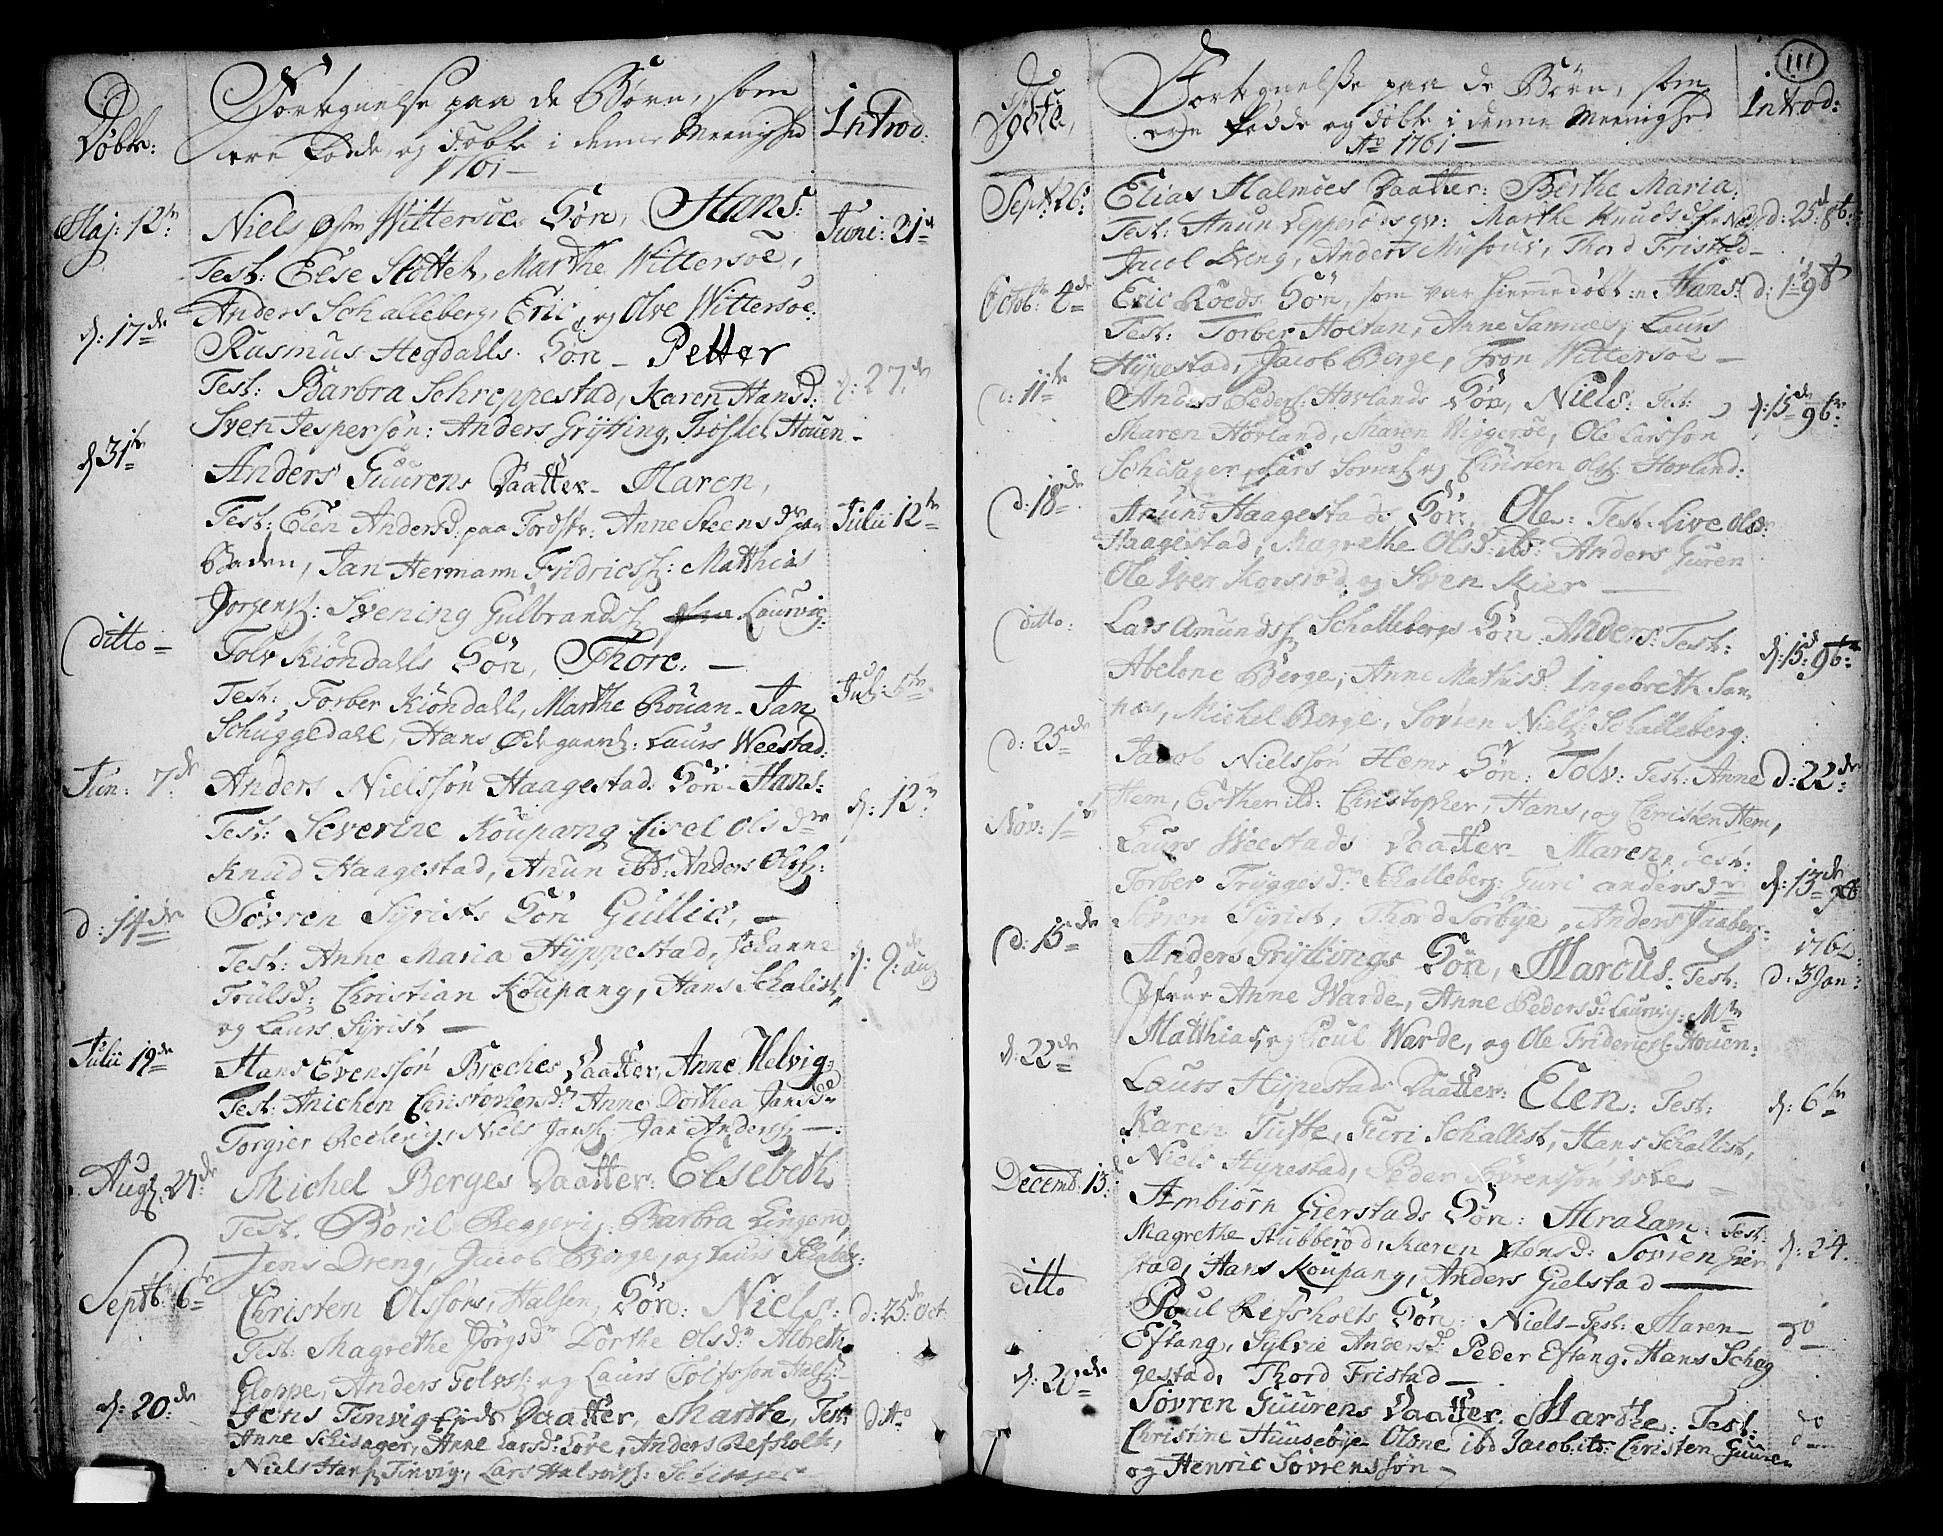 Döbte:
Fortegnelse paa de Börn, som
ere Födde, og döbte i denne Meenighed
1761 —
Introd:
Maj: 12te
Niels Wittersöe Sön, Hans:
Juni: 21
Test: Else Stöttet, Marthe Wittersöe,
Anders Schalleberg, Eric, og Olve Wittersöe.
d: 17de
Rasmus Hegdahls Sön — Petter
Test: Barbra Schreppestad, Karen Hansd:
d: 27de
Sven Jespersön: Anders Grÿtting, Tröstel Houen —
d 31te
Anders Guurens Daatter — Maren,
Test: Elen Andersd: paa Fordstr: Anne Steensdr paa
Julii 12te
Baden, Jan Hermann Fridrics: Matthias
Jorgens: Svening Gulbrands Laurvig:
ditto —
Tolv Kiöndalls Sön, Thore. —
Test: Torber Kiöndall, Marthe Rouan — Jan
Jul:
Schuggedahl, Hans Ödegaard: Laurs Weestad:
Jun: 7de
Anders Nielssön Haagestad Sön — Hans:
d: 12
Test: Severine Koupang Lisel Olsdr
Knud Haagestad, Anun ibd: Anders Ols:
d: 14de
Sövren Sÿrists Sön Gullic, —
Test: Anne Maria Hÿppestad, Johanne
d: 9: aug
Trulsd: Christian Koupang, Hans Schalist,
og Laurs Sÿrist —
Julii 19de
Hans Evenssön Breches Daatter, Anne Helvig:
Test: Anichen Christophersd: Anne Dorthea Jansdr
Torgier Recherig, Niels Jans: Jan Anders —
Aug: 27de
Michel Berges Daatter: Elsebeth
Test: Böril Reggeri: Barbra Lingom,
Jens Dreng, Jacob Berge, og Laurs Schalleb:
Septb: 6te
Christen Olssöns, Halsen, Sön: Niels:
d: 25de Oct
Test: Magrethe Jörgsdr Dorthe Olsdr Albreth
Gloppe, Anders Tolvs: og Laurs Tolfsson Hals:
d: 20de
Jens Tinvig Daatter, Marthe, Test:
ditto
Anne Schisager, Anne Larsd: Löve, Anders Refsholt,
Niels Hans Tinvig, Lars Halvors: Schisager
111
Döbte,
Fortegnelse paa de Börn, som
ere födde og döbte i denne Meenighed
Ao 1761 —
Introd:
Sept: 26
Elias Halmöes Daatter: Berthe Maria.
Test: Anun Leppersöes qv: Marthe Knudsd
d: 25d 8b:
Jacob Dreng, Anders Musous, Thord Fristad —
Octob:
Eric Röeds Sön, som var hiemmedöbt: n: Hans:
d: 1: 9b
Test: Torber Holtan, Anne Samuels, Laurs
Hÿpestad, Jacob Berge, Tron Wittersöe —
d: 11te
Anders Peders: Hovlands Sön, Niels: Test:
d: 15de 9br
Maren Hovland, Maren Wiggeröe, Ole Larssön
Schisager, Lars Sovren og Christen Ols: Hovland:
d: 18de
Anund Haagestads Sön, Ole: Test: Live Olsdr
Haagestad, Magrethe Olsd: ibd: Anders Guren
Ole Iver Korsröd og Sven Kier —
ditto:
Lars Amunds Schallebergs Sön: Anders: Test:
d: 15d 9b:
Abelone Berge, Anne Mathisd: Ingebreth San-
næs, Michel Berge, Sövren Niels: Schalleberg.
d: 25de
Jacob Nielssön Hems Sön: Tolv: Test: Anne
d: 22de
Hem, Esther ibd: Christopher, Hans, og Christen Hem,
Nov: 1te
Laurs Weestads Daatter — Maren, Test:
Torber Trÿggesdr Schalleberg: Guri Andersdr
d: 13de
Sövren Sÿrist, Thord Sörbÿe, Anders Haaber:
d: 15de
Anders Grÿttings Sön, Marcus: Test:
1762
d: 3 Jan:
Jfrue Anne Warde, Anne Pedersd: Laurvig: Mr
Matthias, og Poul Warde, og Ole Fridericks: Houen:
d: 22de
Laurs Hÿpestads Daatter: Elen: Test:
d: 6te
Karen Tufte, Turi Schallist, Hans Schallist,
Niels Hÿpestad, Peder Sövrenssön Iske —
Decemb: 13:
Ambiörn Gierstads Sön: Abraham: Test:
Magrethe Stubberöd, Karen Jensd: Sovren Gier
d: 24.
stad, Hans Koupang, Anders Gielstad —
ditto
Poul Refsholts Sön: Niels — Test: Maren —
do
Eftang, Sÿlvie Andersd Peder Eftang, Hans Scheg
gestad, Thord Fristad —
Sövren Guurens Daatter: Marthe: Test:
do
Christine Huusebÿe Olsne ibd Jacob its: Christen Guuren
og Henric Sövrenssön —